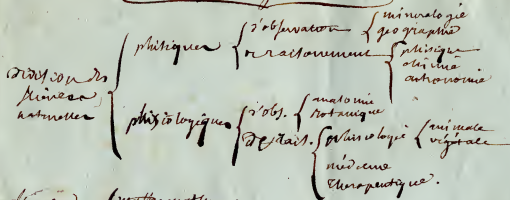 division des
sciences
naturelles
phisiques
d'observation
mineralogie
geographie
de raisonement
phisique
chimie
astronomie
phisiologiques
d'obs.
anatomie
botanique
de rais.
phisiologie
animale
végétale
médecine
therapeutique.